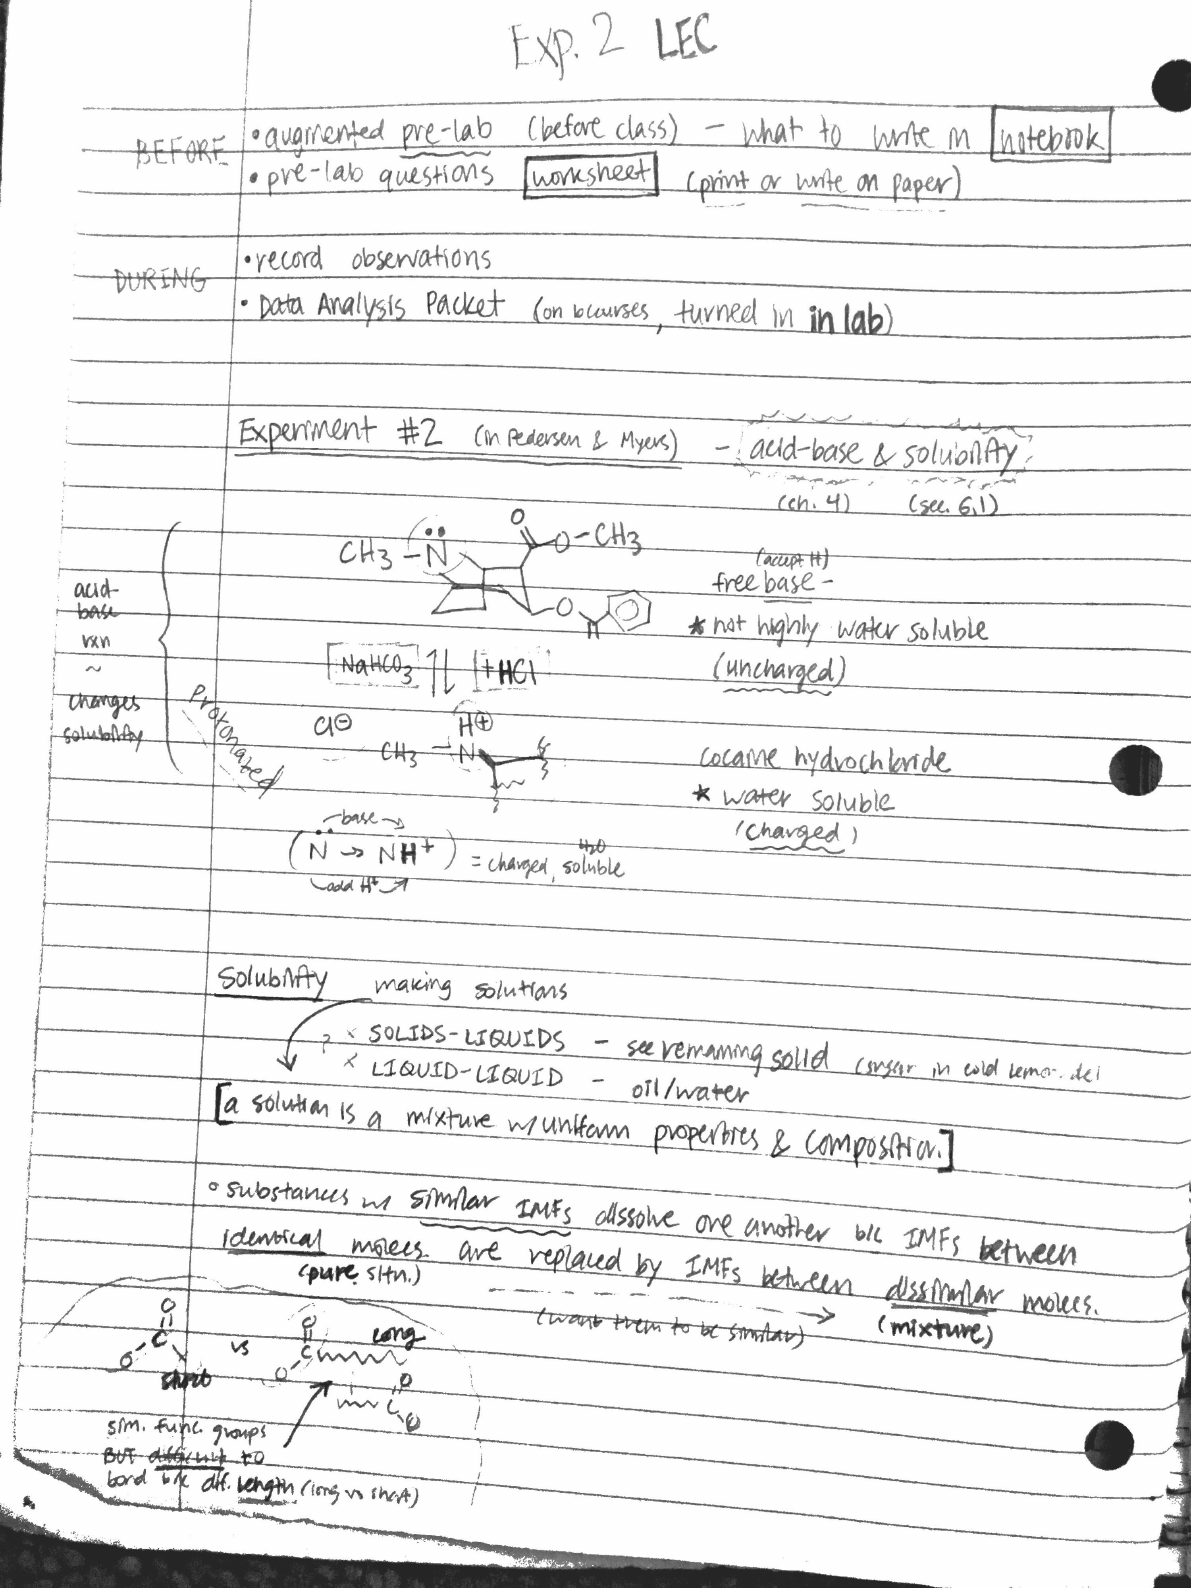 Exp. 2 LEC
BEFORE • augmented pre-lab (before class) – what to write in notebook
• pre-lab questions worksheet (print or write on paper)
DURING • record observations
• Data Analysis Packet (on bcourses, turned in in lab)
Experiment #2 (in Pedersen & Myers) – acid-base & solubility
(ch. 4) (sec. 6.1)
CH3 – N O O – CH3
(accept H)
free base –
O H
* not highly water soluble
(uncharged)
acid-
base
rxn
~
changes
solubility
NaHCO3 ⇅ + HCl
Protonated
Cl⊖ H⊕
CH3 – N
cocaine hydrochloride
* water soluble
(charged)
base →
(N → NH+) = charged, H2O soluble
add H+ →
Solubility making solutions
? × SOLIDS-LIQUIDS – see remaining solid (sugar in cold
× LIQUID-LIQUID – oil/water
[a solution is a mixture w/ uniform properties & composition.]
• substances w/ similar IMFs dissolve one another b/c IMFs between
identical molecs. are replaced by IMFs between dissimilar molecs.
(pure sltn.) (want them to be similar) (mixture)
O C O short vs O C O long
O C O
sim. func. groups
BUT difficult to
bond b/c diff. length (long vs short)